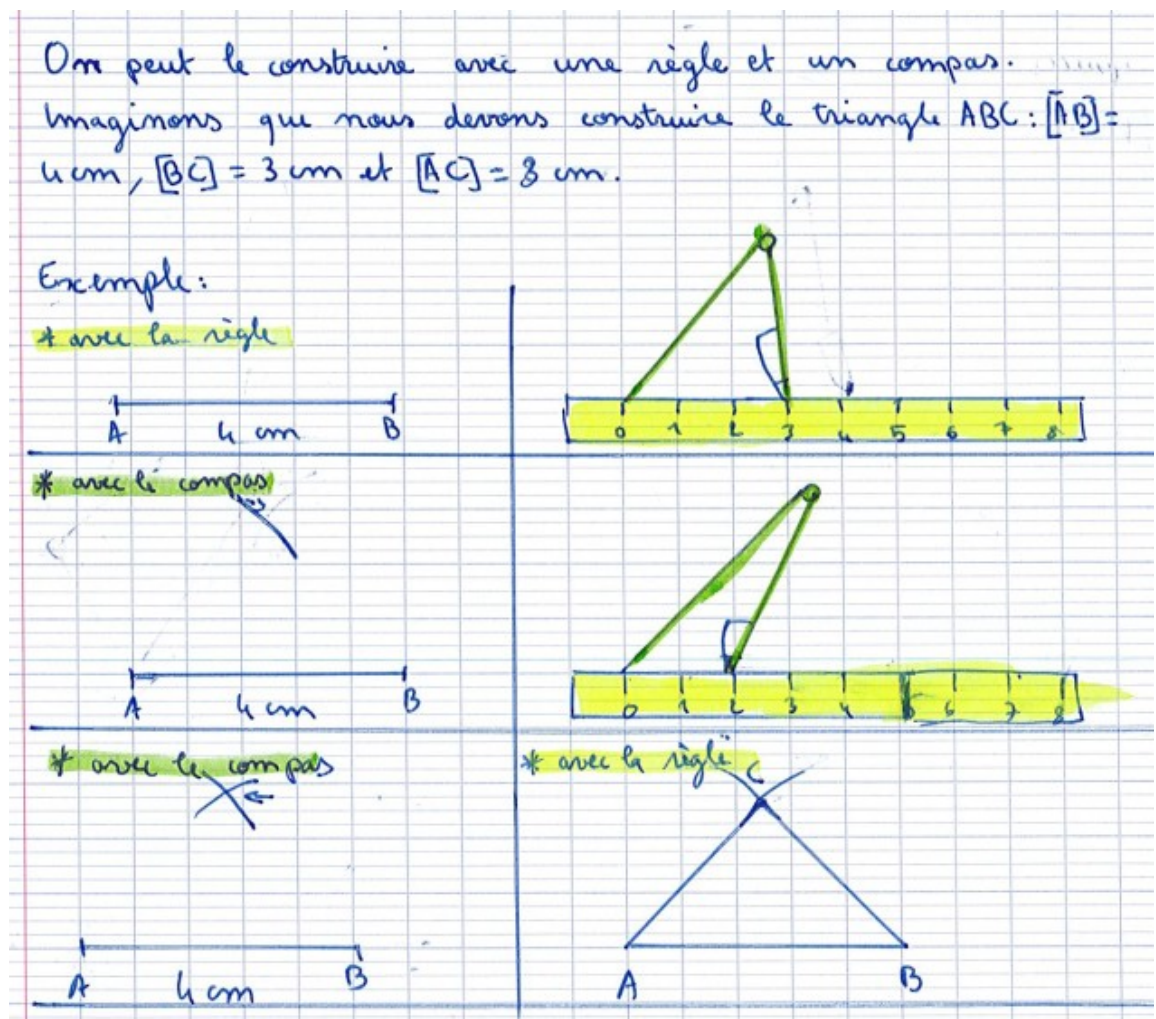 On peut le construire avec une règle et un compas.
Imaginons que nous devons construire le triangle ABC : [AB] =
4 cm, [BC] = 3 cm et [AC] = cm.
Exemple :
* avec la règle
A 4 cm B
0 1 2 3 4 5 6 7 8
* avec le compas
A 4 cm B
0 1 2 3 4 5 6 7 8
* avec le compas
A 4 cm B
* avec la règle
C
A B